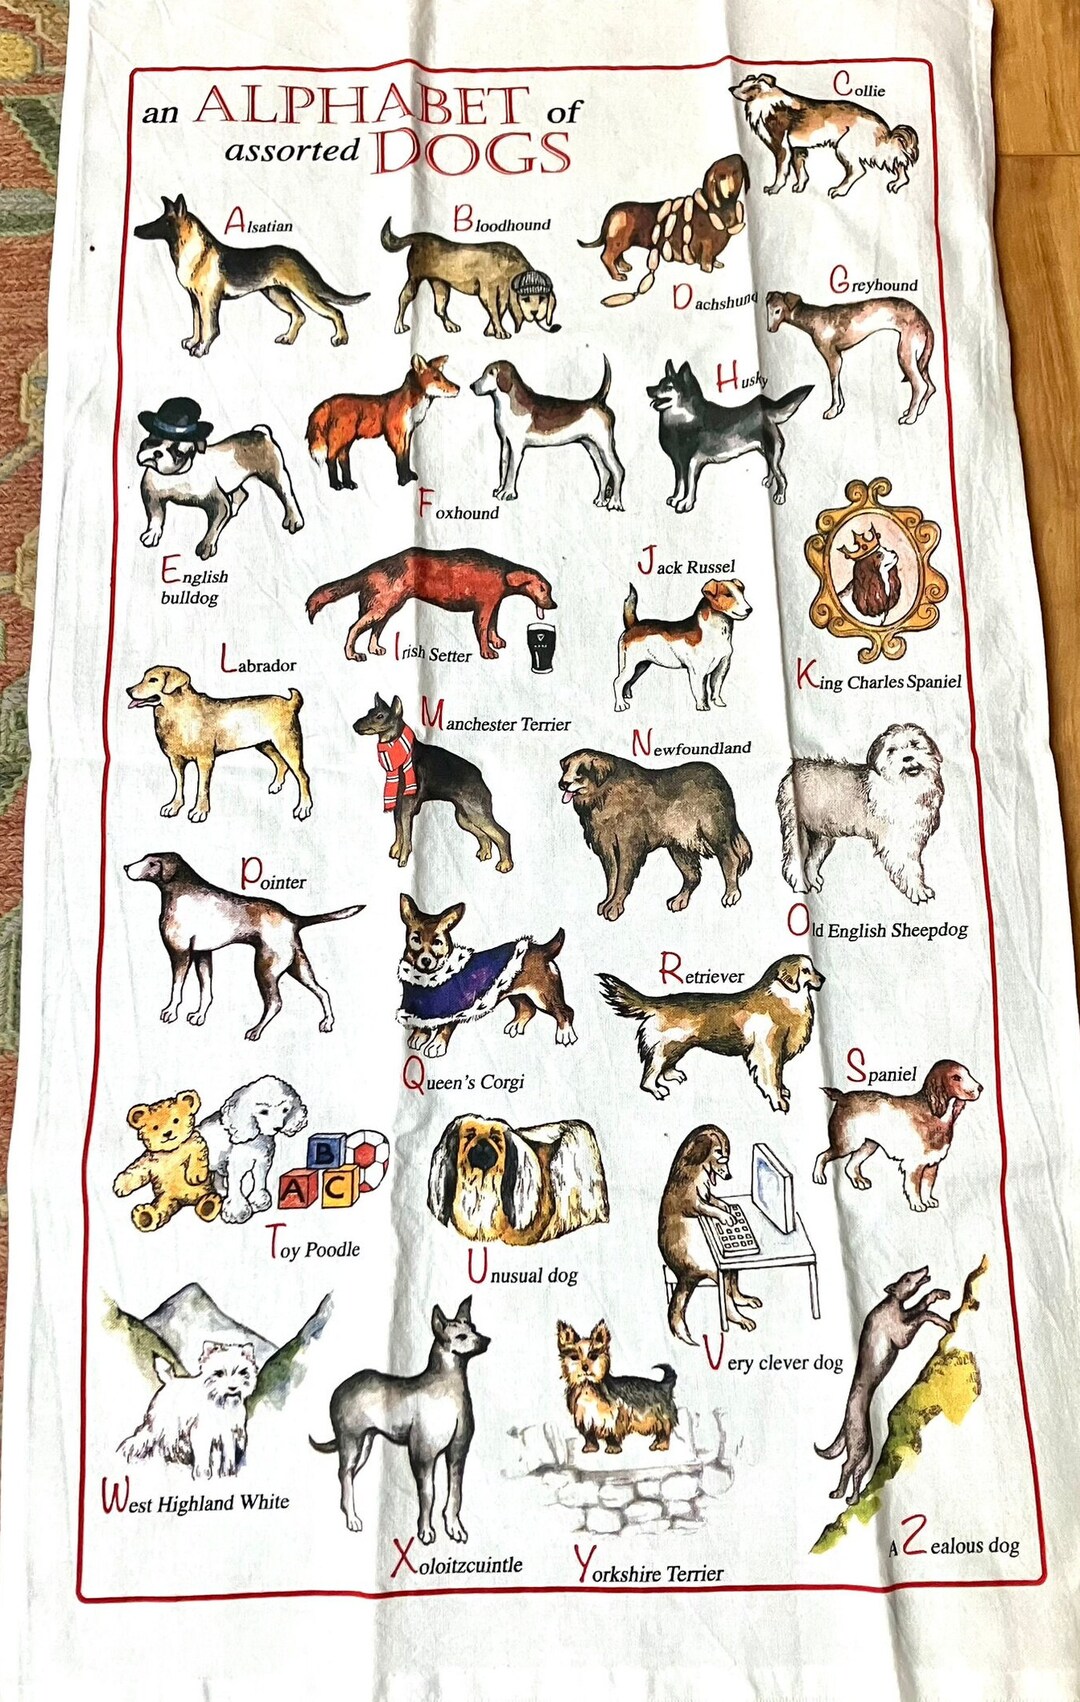 an ALPHABET of
assorted DOGS
Collie
Alsatian
Bloodhound
Dachshund
Greyhound
English
bulldog
Foxhound
Husky
Irish Setter
Jack Russel
King Charles Spaniel
Labrador
Manchester Terrier
Newfoundland
Old English Sheepdog
Pointer
Queen's Corgi
Retriever
Spaniel
B
A C
Toy Poodle
Unusual dog
Very clever dog
West Highland White
Xoloitzcuintle
Yorkshire Terrier
A Zealous dog